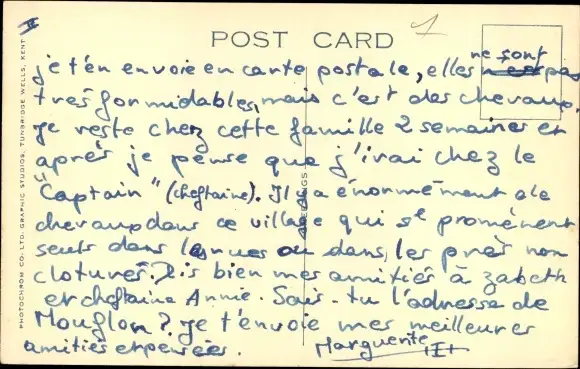 II
1
POST CARD
PHOTOCHROM CO. LTD. GRAPHIC STUDIOS, TUNBRIDGE WELLS, KENT
je t'en envoie en carte postale, elles ne sont pas
très formidables, mais c'est des chevaux.
Je reste chez cette famille 2 semaines et
après je pense que j'irai chez le
"Captain" (cheftaine). Il y a énormément de
chevaux dans ce village qui se promènent
seuls dans les rues ou dans les près non
cloturés. Dis bien mes amitiés à Zabeth
et cheftaine Annie. Sais-tu l'adresse de
Mouflon? Je t'envoie mes meilleures
amitiés et pensées. Marguerite